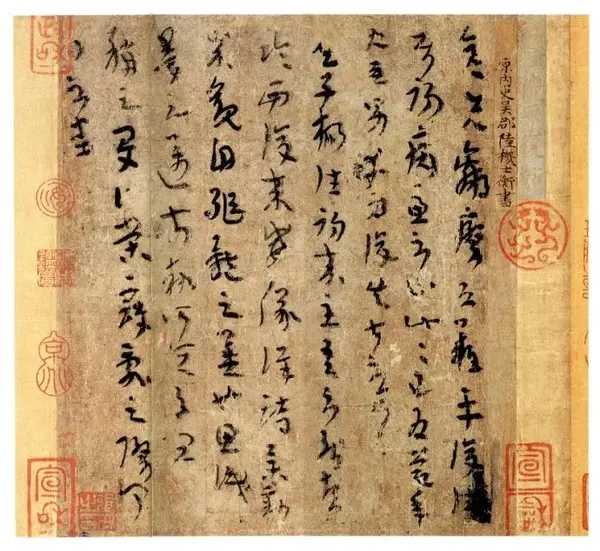 晉內史吳郡陸機士衡書
彥先羸瘵恐難平復往屬
初病慮不止此此已為慶承
使唯男幸為復失前憂耳
吳子楊往初來主吾不能盡
臨西復來威儀詳跱舉動
成觀自軀體之美也思識
愛之邁前執所恒有宜
稱之夏伯榮寇亂之際聞
問不悉
宣和